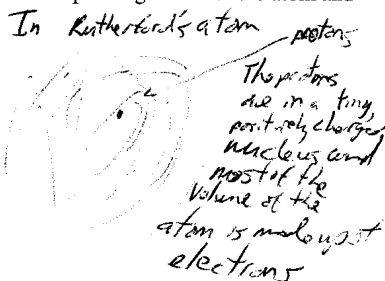 In Rutherford's atom
protons
The protons
are in a tiny,
positively charged
nucleus and
most of the
volume of the
atom is made up of
electrons